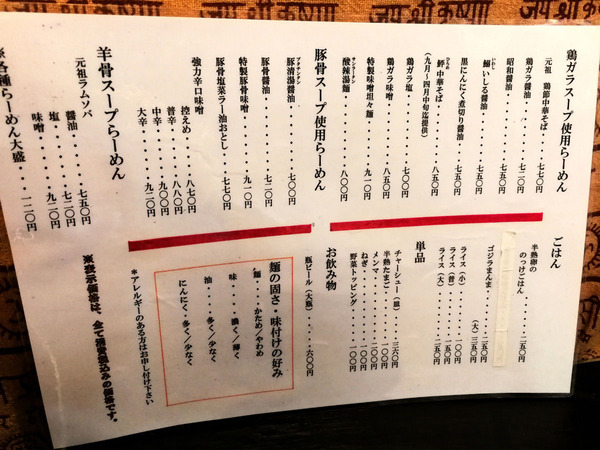 जय श्री कृष्ण
鶏ガラスープ使用らーめん
元祖 鶏節中華そば・・・七七〇円
鶏ガラ醤油・・・・七二〇円
昭和醤油・・・・・七五〇円
鰮いしる醤油・・・七五〇円
黒にんにく煮切り醤油・・七五〇円
鮃中華そば・・・・・八五〇円
(九月～四月中旬迄提供)
鶏ガラ塩・・・・・七〇〇円
鶏ガラ味噌・・・・八五〇円
特製味噌坦々麺・・・九一〇円
サンラータン
酸辣湯麺・・・・・八〇〇円
豚骨スープ使用らーめん
ブタチンタン
豚清湯醤油・・・・七〇〇円
豚骨醤油・・・・・七二〇円
特製豚骨味噌・・・九一〇円
豚骨塩菜ラー油おとし・・・七七〇円
強力辛口味噌
控えめ・・・・八七〇円
普辛・・・・・八八〇円
中辛・・・・・九〇〇円
大辛・・・・・九二〇円
羊骨スープらーめん
元祖ラムソバ
醤油・・・・・七五〇円
塩・・・・・・七二〇円
味噌・・・・・九二〇円
※各種らーめん大盛・・一二〇円
ごはん
半熟卵の
のっけごはん・・・二五〇円
ゴジラまんま・・・・三五〇円
(大)三五〇円
ライス(小)・・・一〇〇円
ライス(普)・・・一五〇円
ライス(大)・・・二五〇円
単品
チャーシュー(皿)・・三六〇円
半熟たまご・・・・一〇〇円
メンマ・・・・・・二〇〇円
ねぎ・・・・・・・一〇〇円
野菜トッピング・・・一〇〇円
お飲み物
瓶ビール(大瓶)・・・・六〇〇円
麺の固さ・味付けの好み
麺・・・かため／やわめ
味・・・濃く／薄く
油・・・多く／少なく
にんにく・多く／少なく
＊アレルギーのある方はお申し付け下さい
※表示価格は、全て消費税込みの価格です。